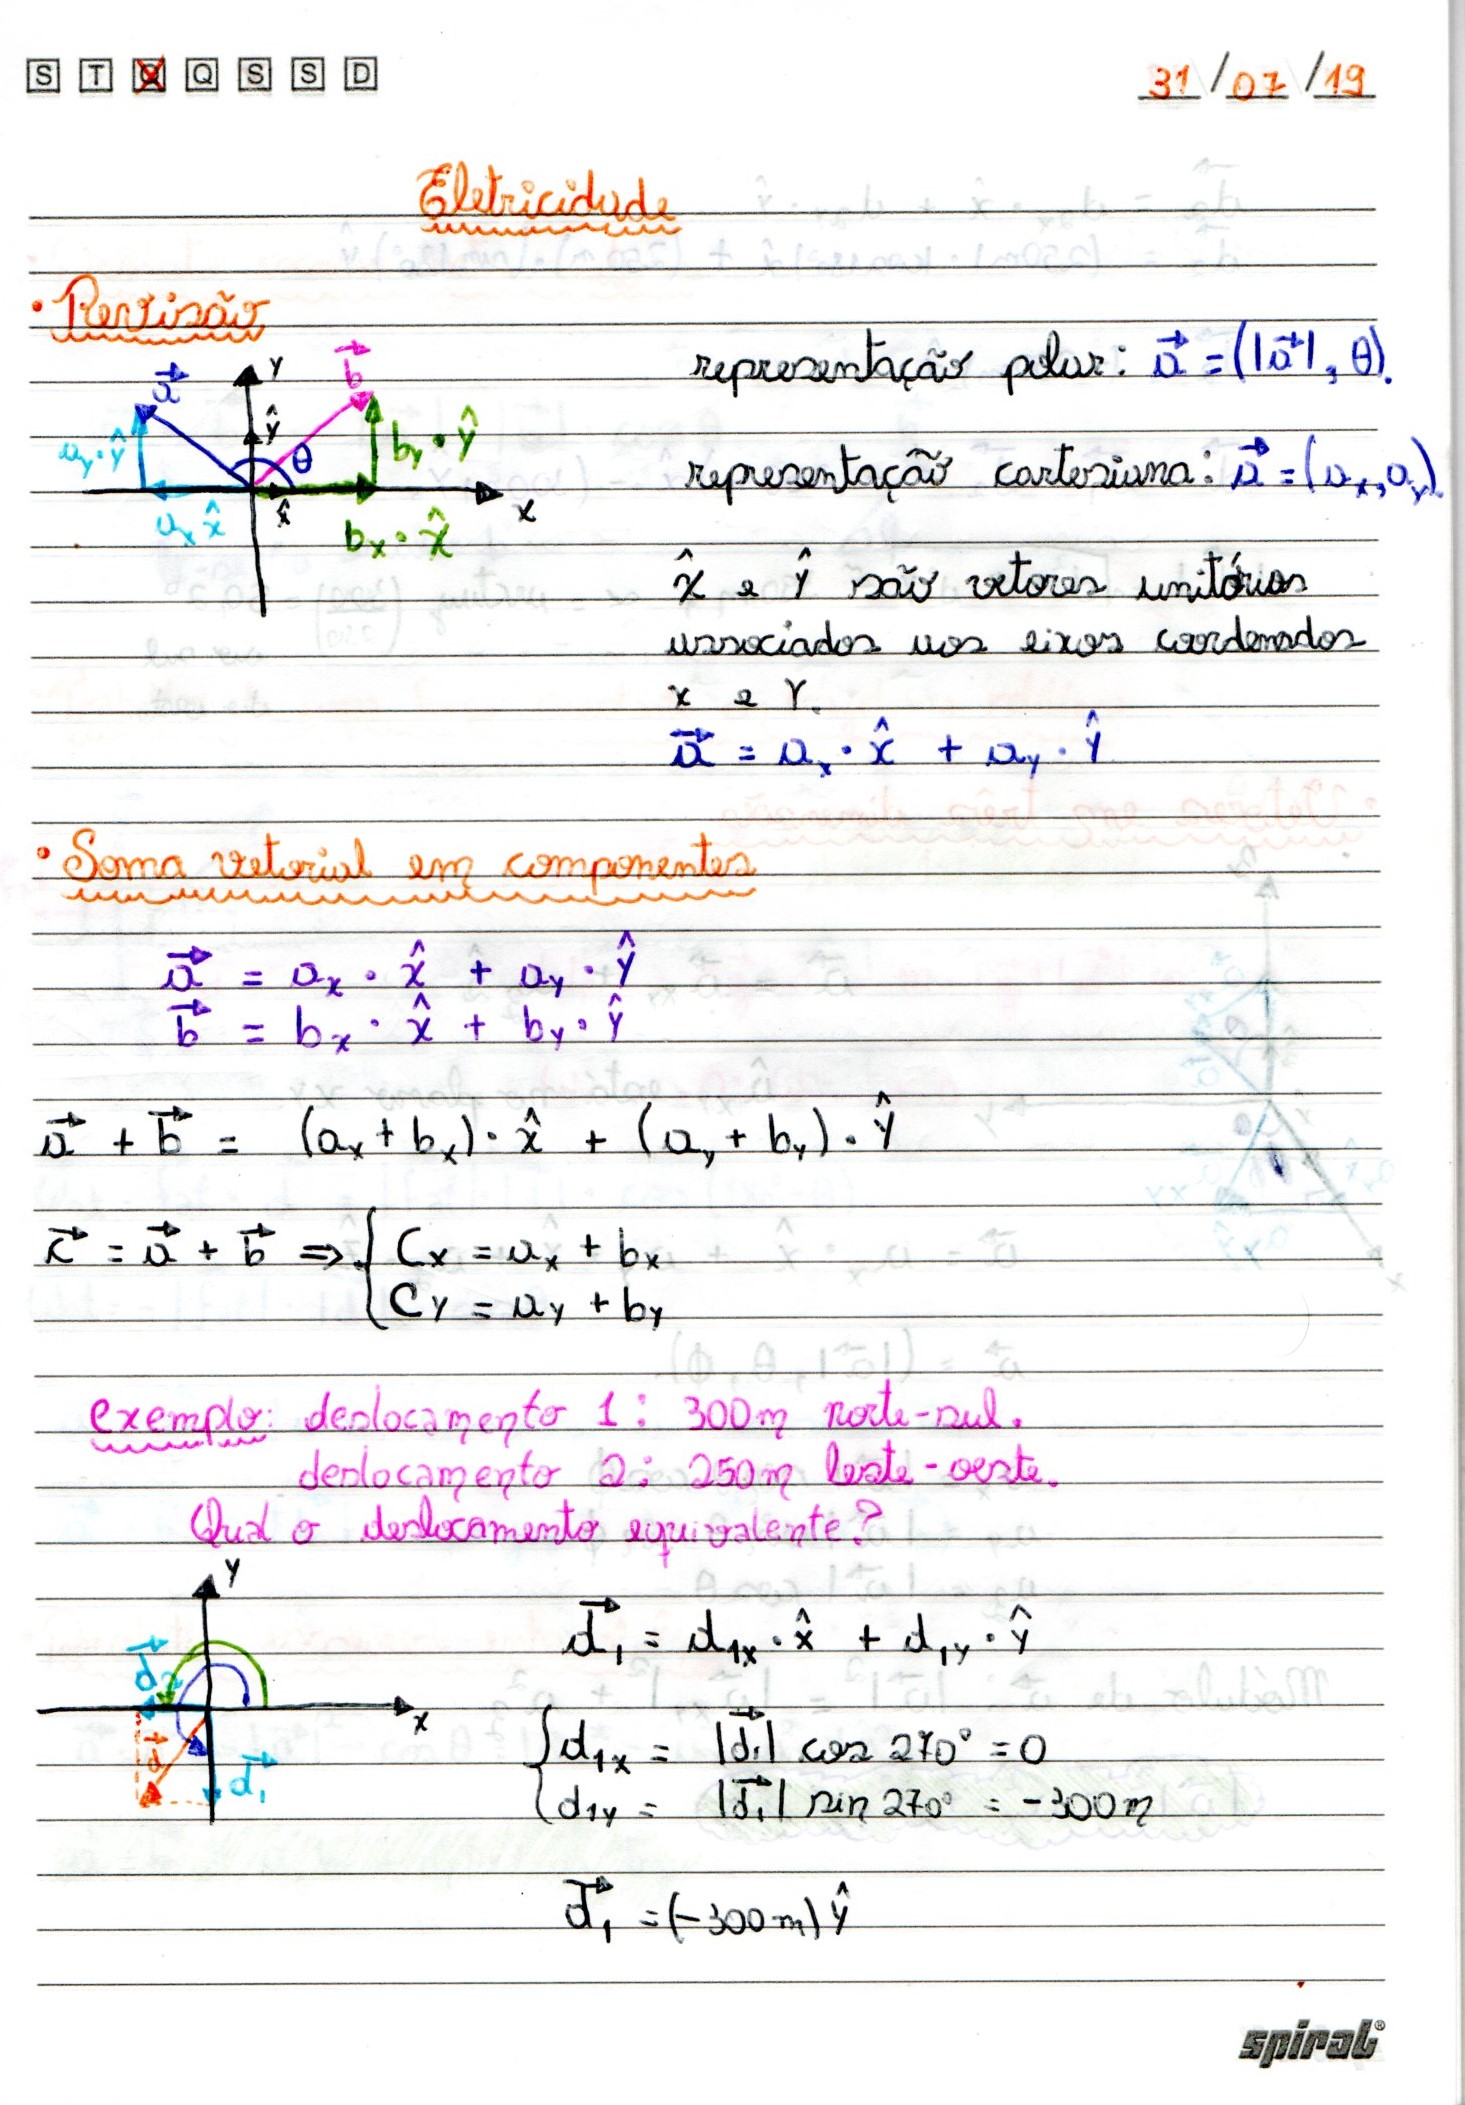 S T Q Q S S D
31/07/19
Eletricidade
• Revisão
representação polar: a⃗ = (|a⃗|, θ).
y
b⃗
a⃗
ŷ
θ
aᵧ·ŷ
bᵧ·ŷ
representação cartesiana: a⃗ = (aₓ, aᵧ).
x̂
x
aₓ x̂
bₓ·x̂
x̂ e ŷ são vetores unitários
associados aos eixos coordenados
x e y.
a⃗ = aₓ·x̂ + aᵧ·ŷ
• Soma vetorial em componentes
a⃗ = aₓ·x̂ + aᵧ·ŷ
b⃗ = bₓ·x̂ + bᵧ·ŷ
a⃗ + b⃗ = (aₓ + bₓ)·x̂ + (aᵧ + bᵧ)·ŷ
c⃗ = a⃗ + b⃗ ⇒ { Cₓ = aₓ + bₓ
Cᵧ = aᵧ + bᵧ
exemplo: deslocamento 1: 300m norte-sul.
deslocamento 2: 250m leste-oeste.
Qual o deslocamento equivalente?
y
d⃗₂
x
d⃗
d⃗₁
d⃗₁ = d₁ₓ·x̂ + d₁ᵧ·ŷ
{ d₁ₓ = |d⃗₁| cos 270° = 0
d₁ᵧ = |d⃗₁| sin 270° = -300m
d⃗₁ = (-300m) ŷ
spiral®